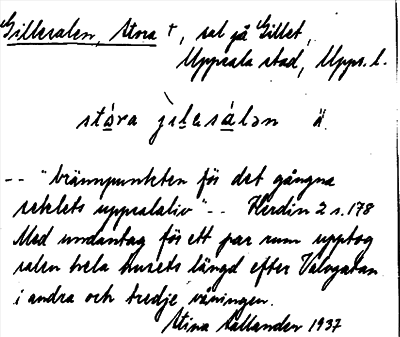 Gillesalen, Stora †, sal på Gillet,
Uppsala stad, Upps. l.
stɷ́ra jɩ̀lesálən ä.
-- "brännpunkten för det gångna
seklets uppsalaliv" -- Herdin 2 s. 178
Med undantag för ett par rum upptog
salen hela husets längd efter Valvgatan
i andra och tredje våningen.
Stina Sallander 1937